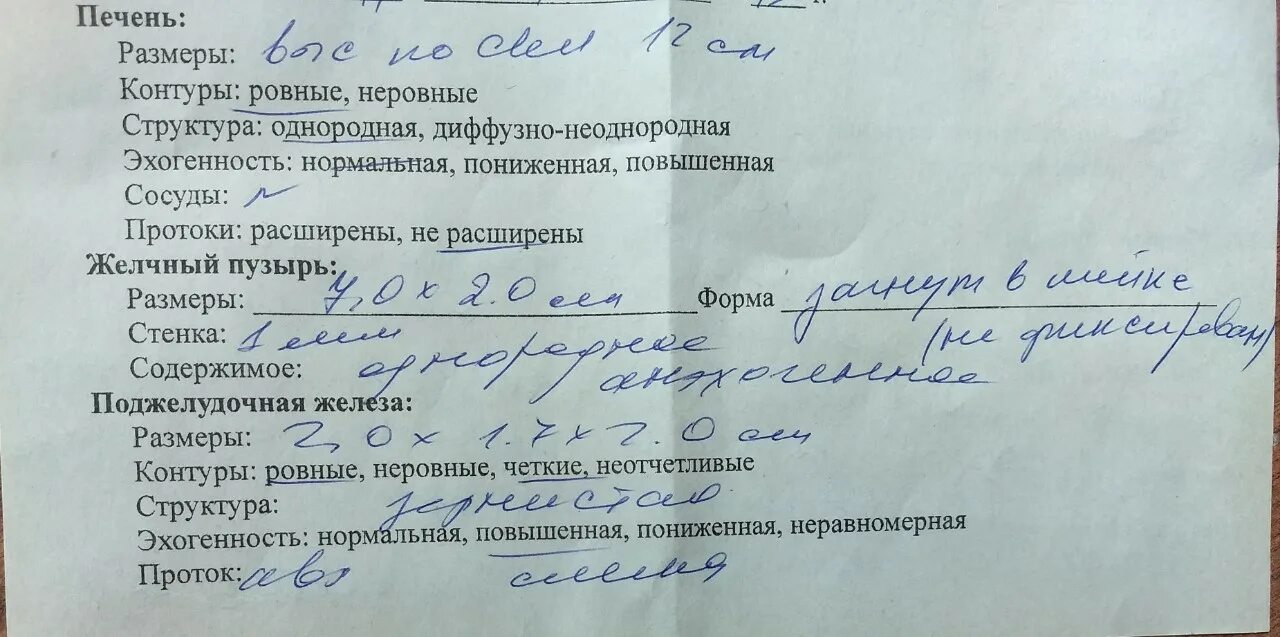 Печень:
Размеры: выс по СКЛ 12 см
Контуры: ровные, неровные
Структура: однородная, диффузно-неоднородная
Эхогенность: нормальная, пониженная, повышенная
Сосуды: N
Протоки: расширены, не расширены
Желчный пузырь:
Размеры: 7,0 x 2.0 см Форма загнут в шейке
Стенка: 1 мм (не фиксирован)
Содержимое: однородное анэхогенное
Поджелудочная железа:
Размеры: 2,0 x 1.7 x 2.0 см
Контуры: ровные, неровные, четкие, неотчетливые
Структура: зернистая
Эхогенность: нормальная, повышенная, пониженная, неравномерная
Проток: